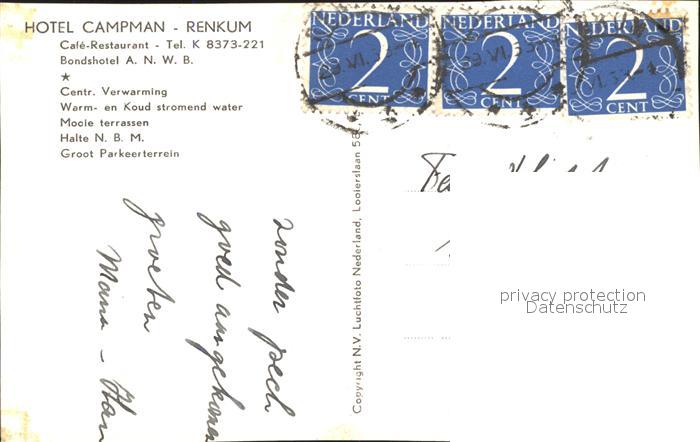 HOTEL CAMPMAN - RENKUM
Café-Restaurant - Tel. K 8373-221
Bondshotel A. N. W. B.
★
Centr. Verwarming
Warm- en Koud stromend water
Mooie terrassen
Halte N. B. M.
Groot Parkeerterrein
NEDERLAND
2
CENT
NEDERLAND
2
CENT
2
CENT
Copyright N.V. Luchtfoto Nederland, Looierslaan 58
zonder pech
goed aangekomen
groeten
Mans -
privacy protection
Datenschutz